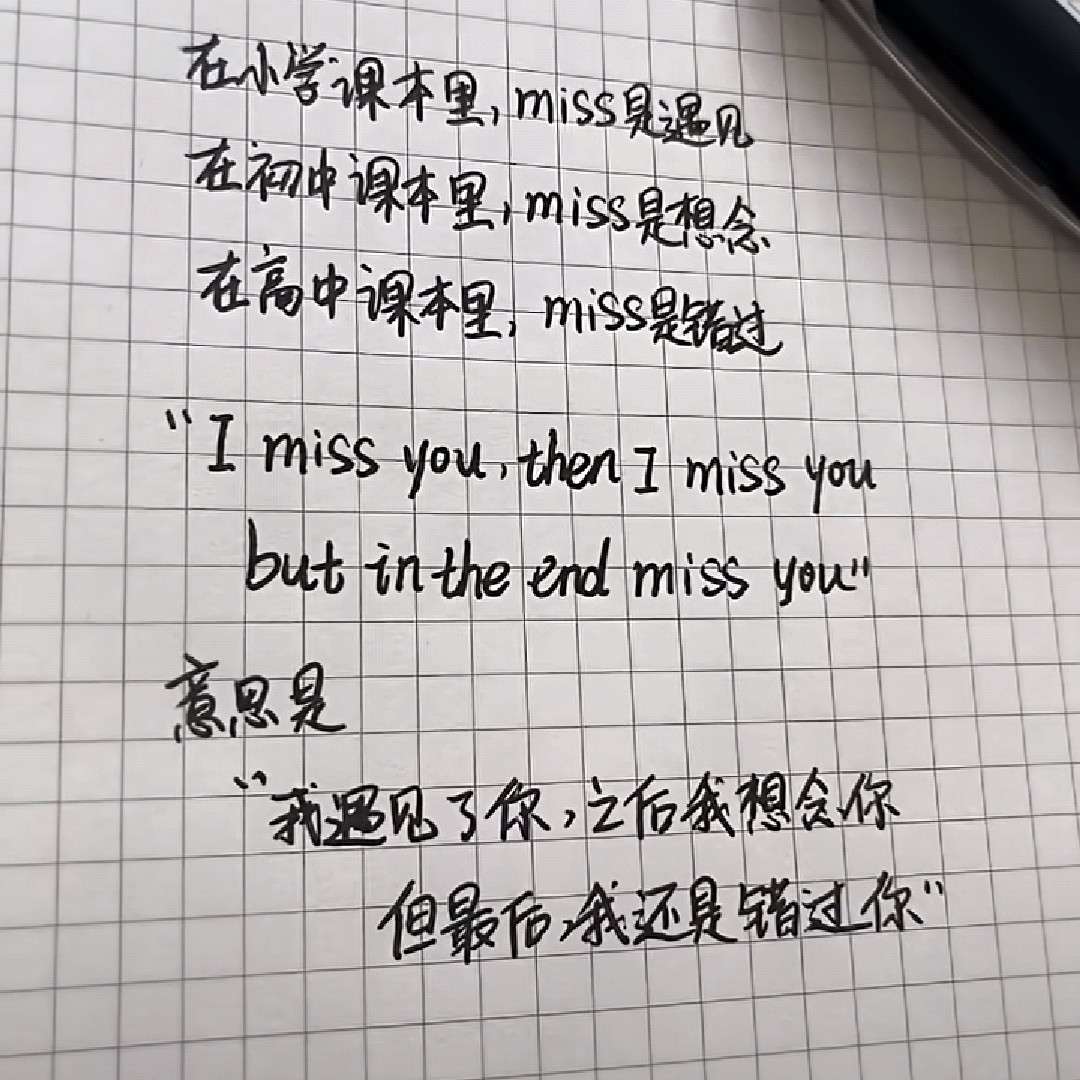 在小学课本里,miss是遇见
在初中课本里,miss是想念
在高中课本里,miss是错过
“I miss you,then I miss you
but in the end miss you”
意思是
“我遇见了你,之后我想念你
但最后,我还是错过你”